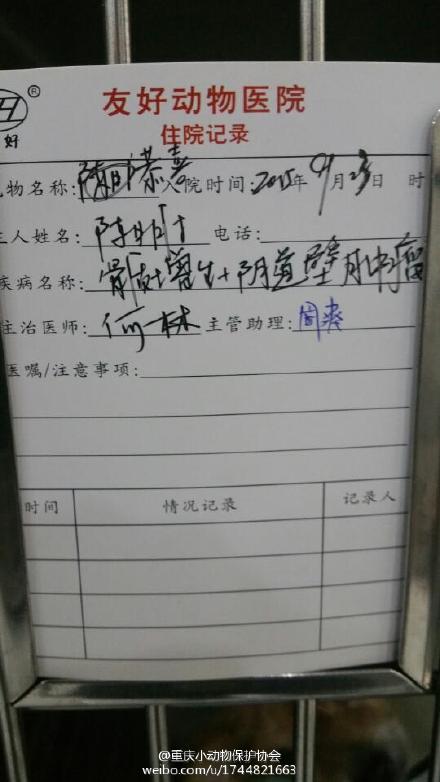 ®
好
友好动物医院
住院记录
物名称: 恭喜 入院时间: 2015年 9月 23日 时
主人姓名: 陈明 电话:
疾病名称: 骨质增生+阴道壁肿瘤
主治医师: 何一林 主管助理: 周爽
医嘱/注意事项:
时间 情况记录 记录人
@重庆小动物保护协会
weibo.com/u/1744821663